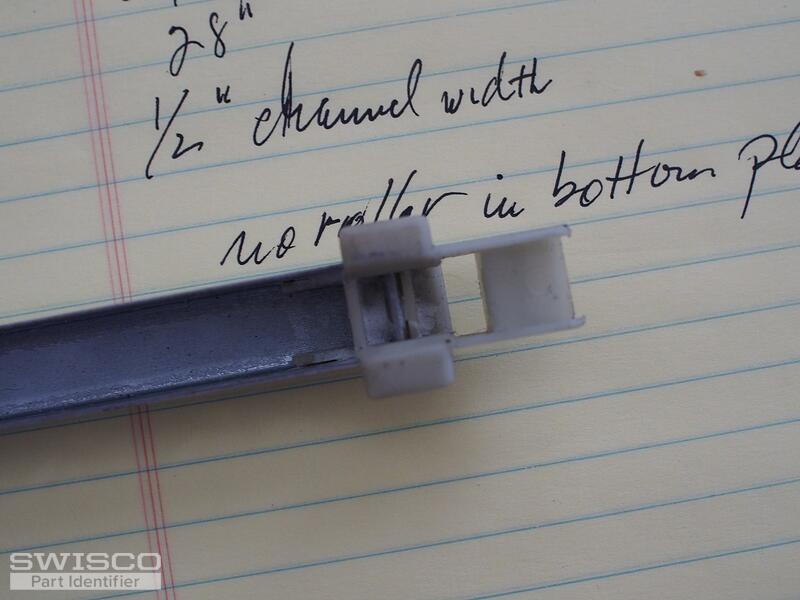 28"
1/2" channel width
no roller in bottom
SWISCO
Part Identifier